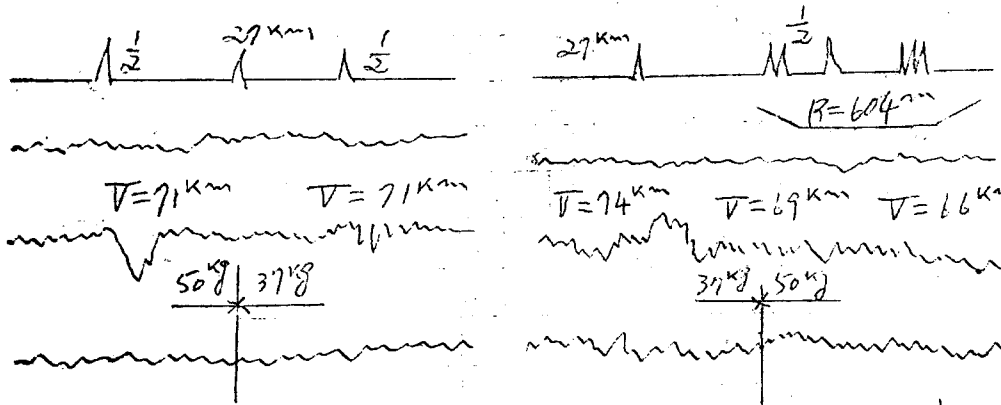 1/2 27Km 1/2
V=71Km V=71Km
50kg 37kg
27Km 1/2
R=604m
V=74Km V=69Km V=66Km
37kg 50kg